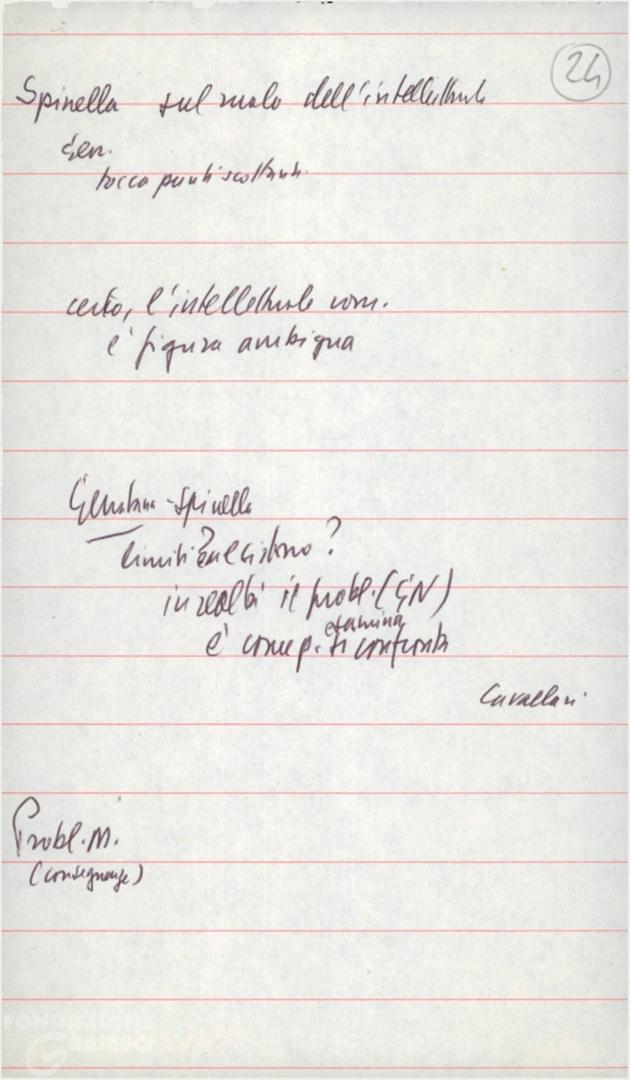 24
Spinella sul ruolo dell'intellettuale
Gen.
tocca punti scottanti.
certo, l'intellettuale com.
è figura ambigua
Gerratana - Spinella
limiti? esistono?
in realtà il probl. (GN)
è come p. si confronta
esamina
Cavallari
Probl. M.
(conseguenze)
FONDAZIONE
GRAMSCI